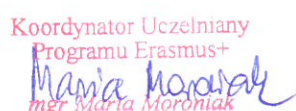 Koordynator Uczelniany
Programu Erasmus+
Maria Moroniak
mgr Maria Moroniak